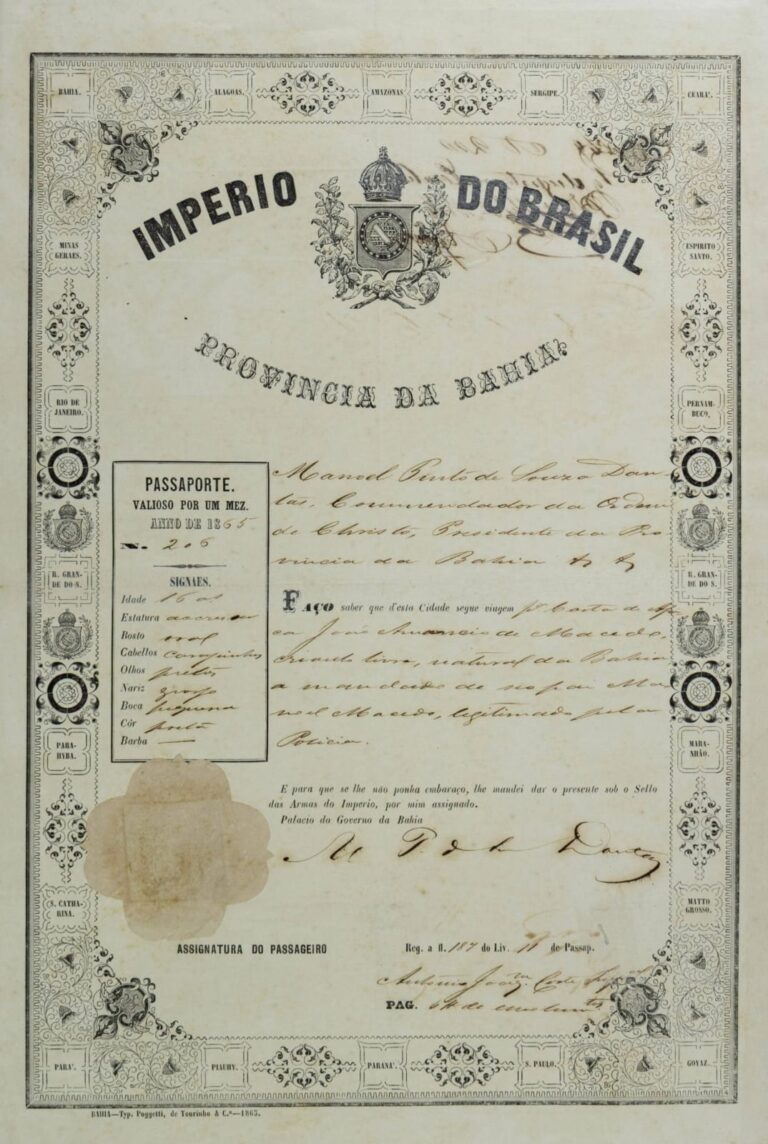 BAHIA.
ALAGOAS.
AMAZONAS
SERGIPE.
CEARA'.
IMPERIO DO BRASIL
MINAS GERAES.
ESPIRITO SANTO.
PROVINCIA DA BAHIA
RIO DE JANEIRO.
PERNAMBUCO.
PASSAPORTE.
VALIOSO POR UM MEZ.
ANNO DE 1865
N. 206
SIGNAES.
Idade 16 as
Estatura a crescer
Rosto oval
Cabellos carapinhos
Olhos pretos
Nariz grosso
Boca pequena
Côr preta
Barba —
Manoel Pinto de Souza Dan
tas, Commendador da Ordem
de Christo, Presidente da Pro
vincia da Bahia
FAÇO saber que d'esta Cidade segue viagem pa. Costa d'Afri
ca João de Macedo,
creoulo livre, natural da Bahia
a mandado de seo pai Ma
noel Macedo, legitimado pela
Policia.
R. GRANDE DO S.
R. GRANDE DO S.
PARAHYBA.
MARANHÃO.
E para que se lhe não ponha embaraço, lhe mandei dar o presente sob o Sello
das Armas do Imperio, por mim assignado.
Palacio do Governo da Bahia
M P de S Dantas
S. CATHARINA.
MATTO GROSSO.
ASSIGNATURA DO PASSAGEIRO
Reg. a fl. 187 do Liv. 11 de Passap.
Antonio Joaqm Costa
PAG. de emolumtos
PARA'.
PIAUHY.
PARANA'.
S. PAULO.
GOYAZ.
BAHIA—Typ. Poggetti, de Tourinho & C.ª—1865.